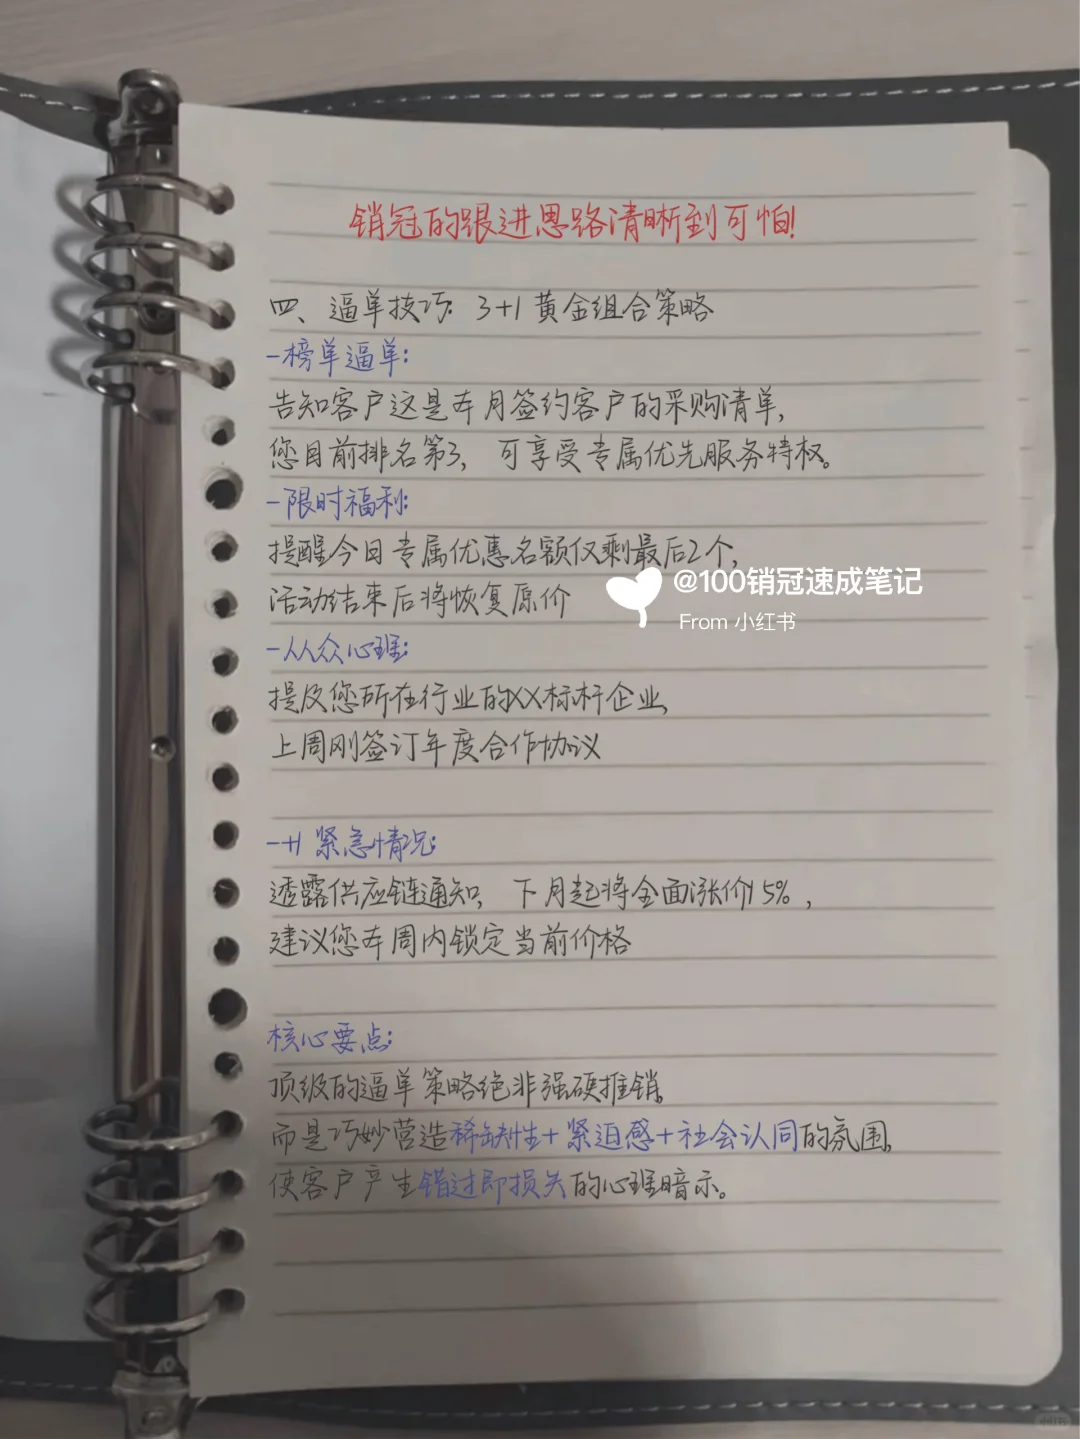 销冠的跟进思路清晰到可怕!
四、逼单技巧: 3+1黄金组合策略
-榜单逼单:
告知客户这是本月签约客户的采购清单,
您目前排名第3, 可享受专属优先服务特权。
-限时福利:
提醒今日专属优惠名额仅剩最后2个,
活动结束后将恢复原价
@100销冠速成笔记
From 小红书
-从众心理:
提及您所在行业的XX标杆企业,
上周刚签订年度合作协议
-+1 紧急情况:
透露供应链通知, 下月起将全面涨价15%,
建议您本周内锁定当前价格
核心要点:
顶级的逼单策略绝非强硬推销,
而是巧妙营造稀缺性+紧迫感+社会认同的氛围,
使客户产生错过即损失的心理暗示。